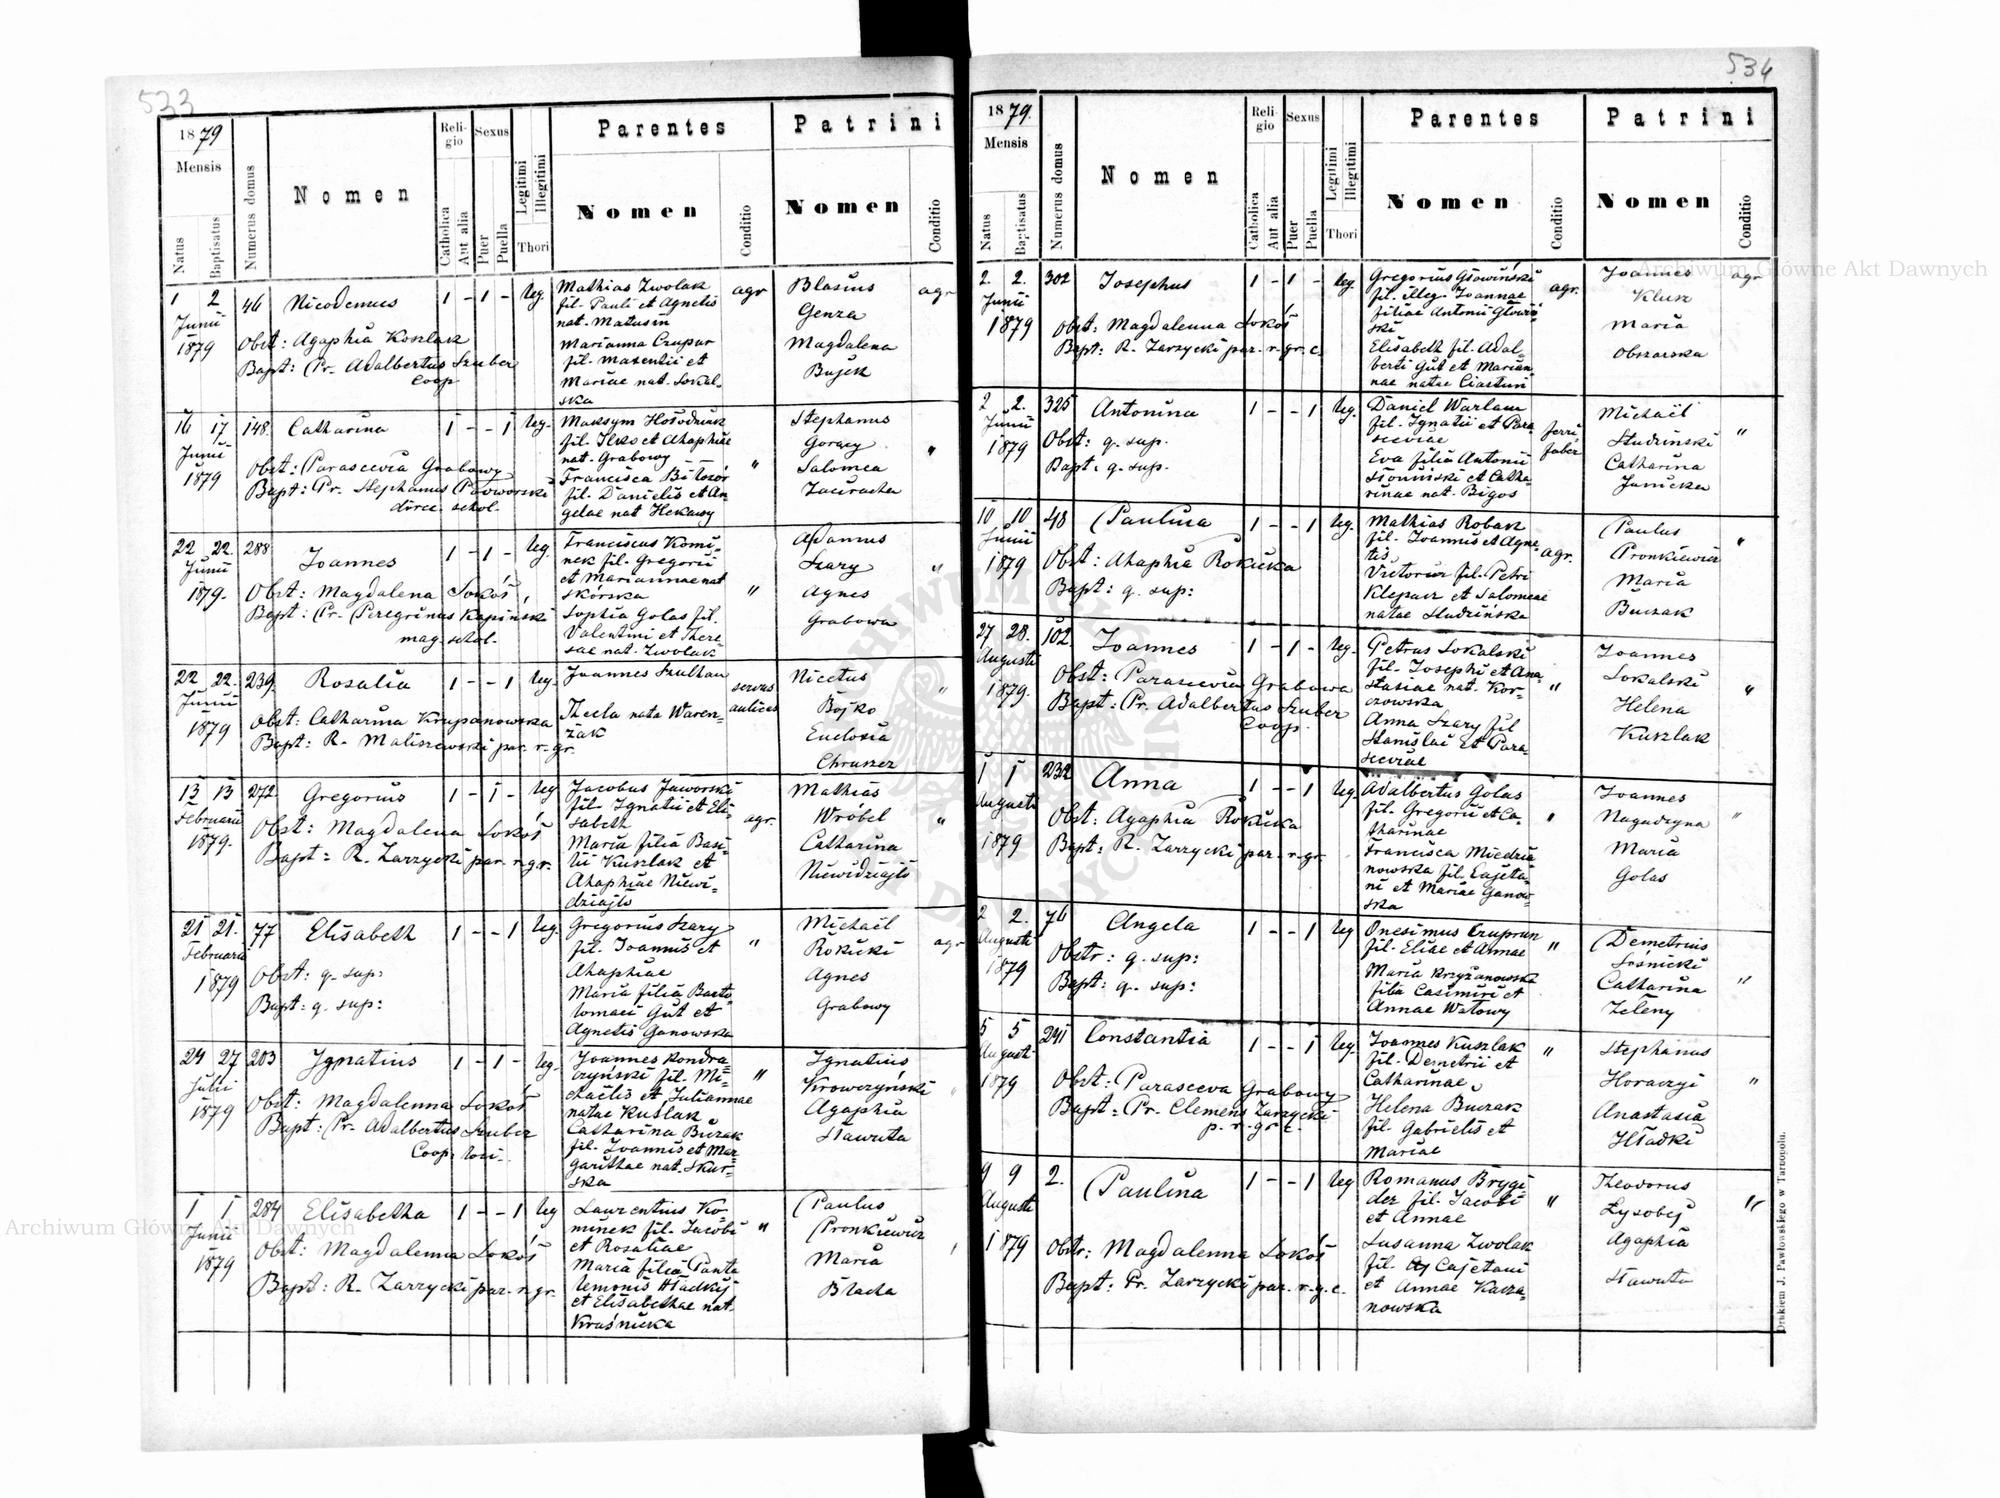 533
1879
Mensis
Natus
Baptisatus
Numerus domus
Nomen
Religio
Catholica
Aut alia
Sexus
Puer
Puella
Legitimi
Illegitimi
Thori
Parentes
Nomen
Conditio
Patrini
Nomen
Conditio
1 2
Junii
1879
46
Nicodemus
Obst: Agaphia Koszlak
Bapt: Pr. Adalbertus Szuber
Coop
1 - 1 -
leg.
Mathias Zwolak
fil. Pauli et Agnetis
nat. Matusin
Marianna Czupar
fil. Maxentii et
Mariae nat. Sokal-
ska
agr
Blasius
Genza
Magdalena
Bujek
agr
16 17
Junii
1879
148
Catharina
Obst: Parascevia Grabowy
Bapt: Pr. Stephanus
direc. schol.
1 - - 1
leg.
Maksym
fil. Ilko et Ahaphiae
nat. Grabowy
Francisca
fil. Danielis et An
gelae nat Hekawy
"
Stephanus
Goracy
Salomea
"
22 22
Junii
1879.
288
Joannes
Obst: Magdalena Sokós
Bapt: Pr. Peregrinus Kapiński
mag. schol.
1 - 1 -
leg
Franciscus Komi-
nek fil. Gregorii
et Mariannae nat
Skórska
Sophia Golas fil.
Valentini et There-
sae nat. Zwolak
"
Adamus
Szary
Agnes
Grabowa
"
22 22.
Junii
1879
239
Rosalia
Obst: Catharina Krupanowska
Bapt: R. Maliszewski par. r. gr.
1 - - 1
leg.
Joannes Szulhan
Thecla nata Waren-
zak
servus
aulicus
Nicetus
Bojko
Eudosia
Chruszcz
"
13 13
Februarii
1879.
272
Gregorius
Obst: Magdalena Sokós
Bapt: R. Zarzycki par. r. g. r.
1 - 1 -
leg
Jacobus Jaworski
fil. Ignatii et Eli-
sabeth
Maria filia Basi-
lii Kuszlak et
Ahaphiae Niewi-
dziajlo
agr.
Mathias
Wróbel
Catharina
Niewidziajlo
"
21 21.
Februarii
1879
77
Elisabeth
Obst: q. sup:
Bapt: q. sup:
1 - - 1
leg.
Gregorius Szary
fil. Joannis et
Ahaphiae
Maria filia Barto
lomaei Gut et
Agnetis Ganowska
"
Michaël
Rokicki
Agnes
Grabowy
agr
24 27
Julii
1879
203
Ignatius
Obst: Magdalenna Sokós
Bapt: Pr. Adalbertus Szuber
Coop. loci.
1 - 1 -
leg.
Joannes Kondra
czyński fil. Mi-
chaëlis et Juliannae
natae Kuslak
Catharina Buczak
fil. Joannis et Mar-
garithae nat. Skur-
ska
"
Ignatius
Krowczyński
Agaphia
Hawruta
"
1 1
Junii
1879
284
Elisabetha
Obst: Magdalenna Sokós
Bapt: R. Zarzycki par. r. gr.
1 - - 1
leg
Laurentius Ko-
minek fil. Jacobi
et Rosaliae
Maria filia Panta
lemonis Hladkij
et Elisabethae nat.
Kraśnicka
"
Paulus
Pronkiewicz
Maria
Blacha
534
1879.
Mensis
Natus
Baptisatus
Numerus domus
Nomen
Religio
Catholica
Aut alia
Sexus
Puer
Puella
Legitimi
Illegitimi
Thori
Parentes
Nomen
Conditio
Patrini
Nomen
Conditio
2. 2.
Junii
1879
302
Josephus
Obst: Magdalenna Sokós
Bapt: R. Zarzycki par. r. gr. c.
1 - 1 -
leg.
Gregorius Głowiński
fil. illeg. Joannae
filiae Antonii Głowiń
ski
Elisabeth fil. Adal-
berti Gut et Marian-
nae natae Ciastuń
agr.
Joannes
Klusz
Maria
Obszarska
agr
2 2.
Junii
1879
325
Antonina
Obst: q. sup.
Bapt: q. sup.
1 - - 1
leg.
Daniel Warlam
fil. Ignatii et Para
sceviae
Eva filia Antonii
Słoniński et Catha-
rinae nat. Bigos
ferri
faber
Michaël
Studziński
Catharina
Janicka
"
10 10
Junii
1879
48
Paulina
Obst: Ahaphia Rokicka
Bapt: q. sup:
1 - - 1
leg.
Mathias Robak
fil. Joannis et Agne-
tis
Victoria fil. Petri
Klepacz et Salomeae
natae Studzińska
agr.
Paulus
Pronkiewicz
Maria
Buczak
"
27 28.
Augusti
1879.
102
Joannes
Obst: Parascevia Grabowa
Bapt: Pr. Adalbertus Szuber
Coop.
1 - 1 -
leg.
Petrus Sokalski
fil. Josephi et Ana
stasiae nat. Kor-
czowska
Anna Szary fil
Stanislai et Para-
sceviae
"
Joannes
Sokalski
Helena
Kuszlak
"
1 1
Augusti
1879
232
Anna
Obst: Agaphia Rokicka
Bapt: R. Zarzycki par. r. gr.
1 - - 1
leg.
Adalbertus Golas
fil. Gregorii et Ca-
tharinae
Francisca Miedzia
nowska fil. Cajeta-
ni et Mariae Ganow-
ska
"
Joannes
Nagadzyna
Maria
Golas
"
2 2.
Augusti
1879
76
Angela
Obstr: q. sup:
Bapt: q. sup:
1 - - 1
leg
Onesimus Czuprun
fil. Eliae et Annae
Maria Krzyżanowska
filia Casimiri et
Annae Watowy
"
Demetrius
Sośnicki
Catharina
Zeleny
"
5 5
Augusti
1879
241
Constantia
Obst: Parasceva Grabowy
Bapt: Pr. Clemens Zarzycki
p. r. gr. c.
1 - - 1
leg.
Joannes Kuszlak
fil. Demetrii et
Catharinae
Helena Buczak
fil. Gabrielis et
Mariae
"
Stephanus
Horaczyi
Anastasia
Hładki
"
9 9
Augusti
1879
2.
Paulina
Obstr: Magdalenna Sokós
Bapt: Pr. Zarzycki par. r. g. c.
1 - - 1
leg
Romanus Brygi
der fil. Jacobi
et Annae
Susanna Zwolak
fil. Cajetani
et Annae Kacza-
nowska
"
Theodorus
Łysobej
Agaphia
Hawruta
"
Drukiem J. Pawłowskiego w Tarnopolu.
Archiwum Główne Akt Dawnych
Archiwum Główne Akt Dawnych
ARCHIWUM GŁÓWNE AKT DAWNYCH